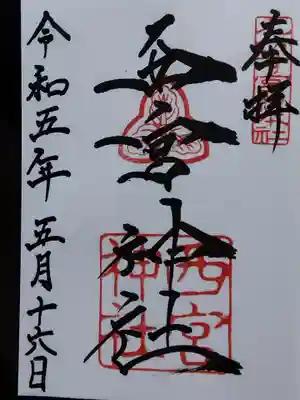 奉拝
西宮神社
西宮
神社
令和五年五月十六日